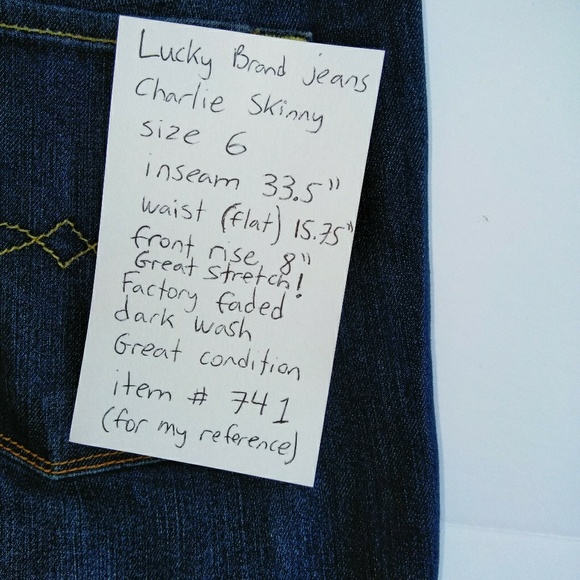 Lucky Brand jeans
Charlie Skinny
size 6
inseam 33.5"
waist (flat) 15.75"
front rise 8"
Great stretch!
Factory faded
dark wash
Great condition
item # 741
(for my reference)